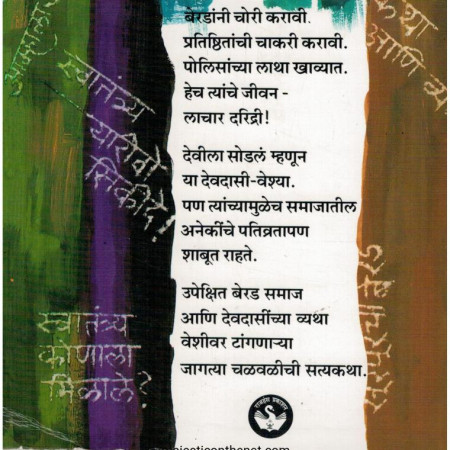 बेरडांनी चोरी करावी.
प्रतिष्ठितांची चाकरी करावी.
पोलिसांच्या लाथा खाव्यात.
हेच त्यांचे जीवन -
लाचार दरिद्री!
देवीला सोडलं म्हणून
या देवदासी-वेश्या.
पण त्यांच्यामुळेच समाजातील
अनेकींचे पतिव्रतापण
शाबूत राहते.
उपेक्षित बेरड समाज
आणि देवदासींच्या व्यथा
वेशीवर टांगणाऱ्या
जागत्या चळवळीची सत्यकथा.
स्वातंत्र्य
स्वातंत्र्य
कोणाला
मिळाले?
कथा
आणि व्य
राजहंस प्रकाशन